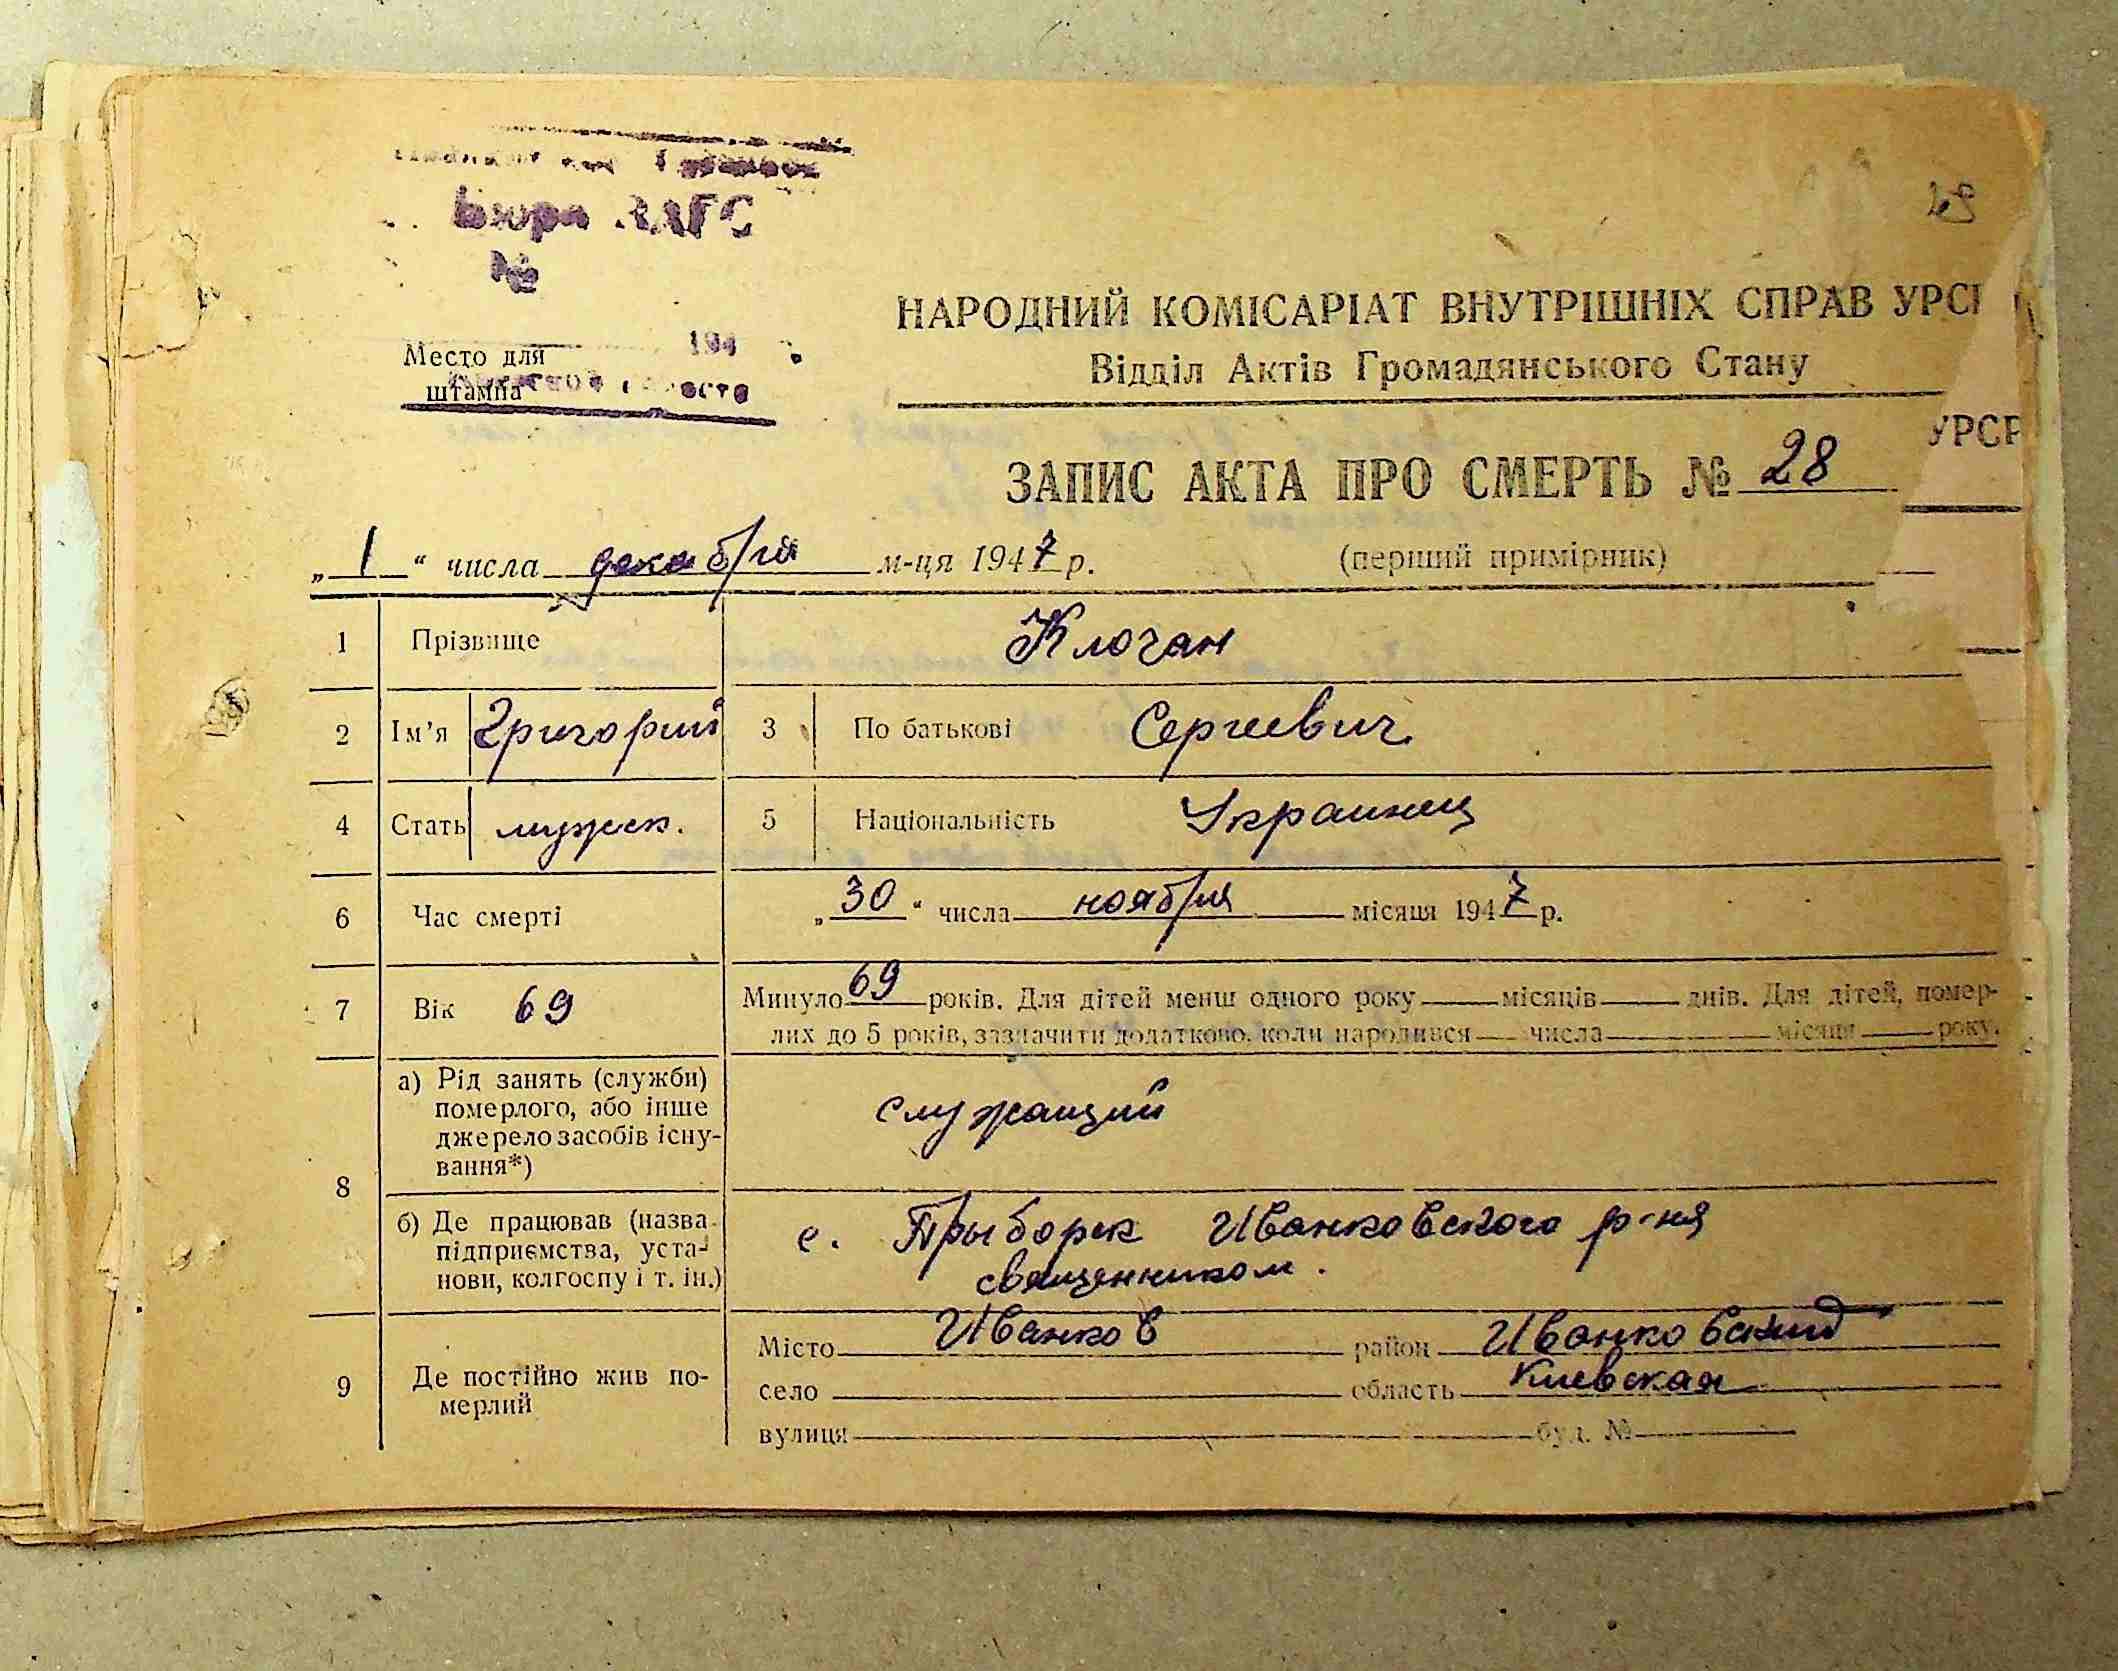 29
Бюро ЗАГС
№
194
Место для
штампа
НАРОДНИЙ КОМІСАРІАТ ВНУТРІШНІХ СПРАВ УРСР
Відділ Актів Громадянського Стану
УРСР
ЗАПИС АКТА ПРО СМЕРТЬ № 28
„1“ числа декабря м-ця 1947 р. (перший примірник)
1 Прізвище Клочан
2 Ім'я Григорий 3 По батькові Сергеевич
4 Стать мужск. 5 Національність Украинец
6 Час смерті „30“ числа ноября місяця 1947 р.
7 Вік 69 Минуло 69 років. Для дітей менш одного року місяців днів. Для дітей, помер-
лих до 5 років, зазначити додатково, коли народився числа місяця року.
8 а) Рід занять (служби)
померлого, або інше
джерело засобів існу-
вання*)
служащий
б) Де працював (назва
підприємства, уста-
нови, колгоспу і т. ін.)
с. Прыборск Иванковского р-ня
священником.
9 Де постійно жив по-
мерлий
Місто Иванков район Иванковский
село область Киевская
вулиця буд. №